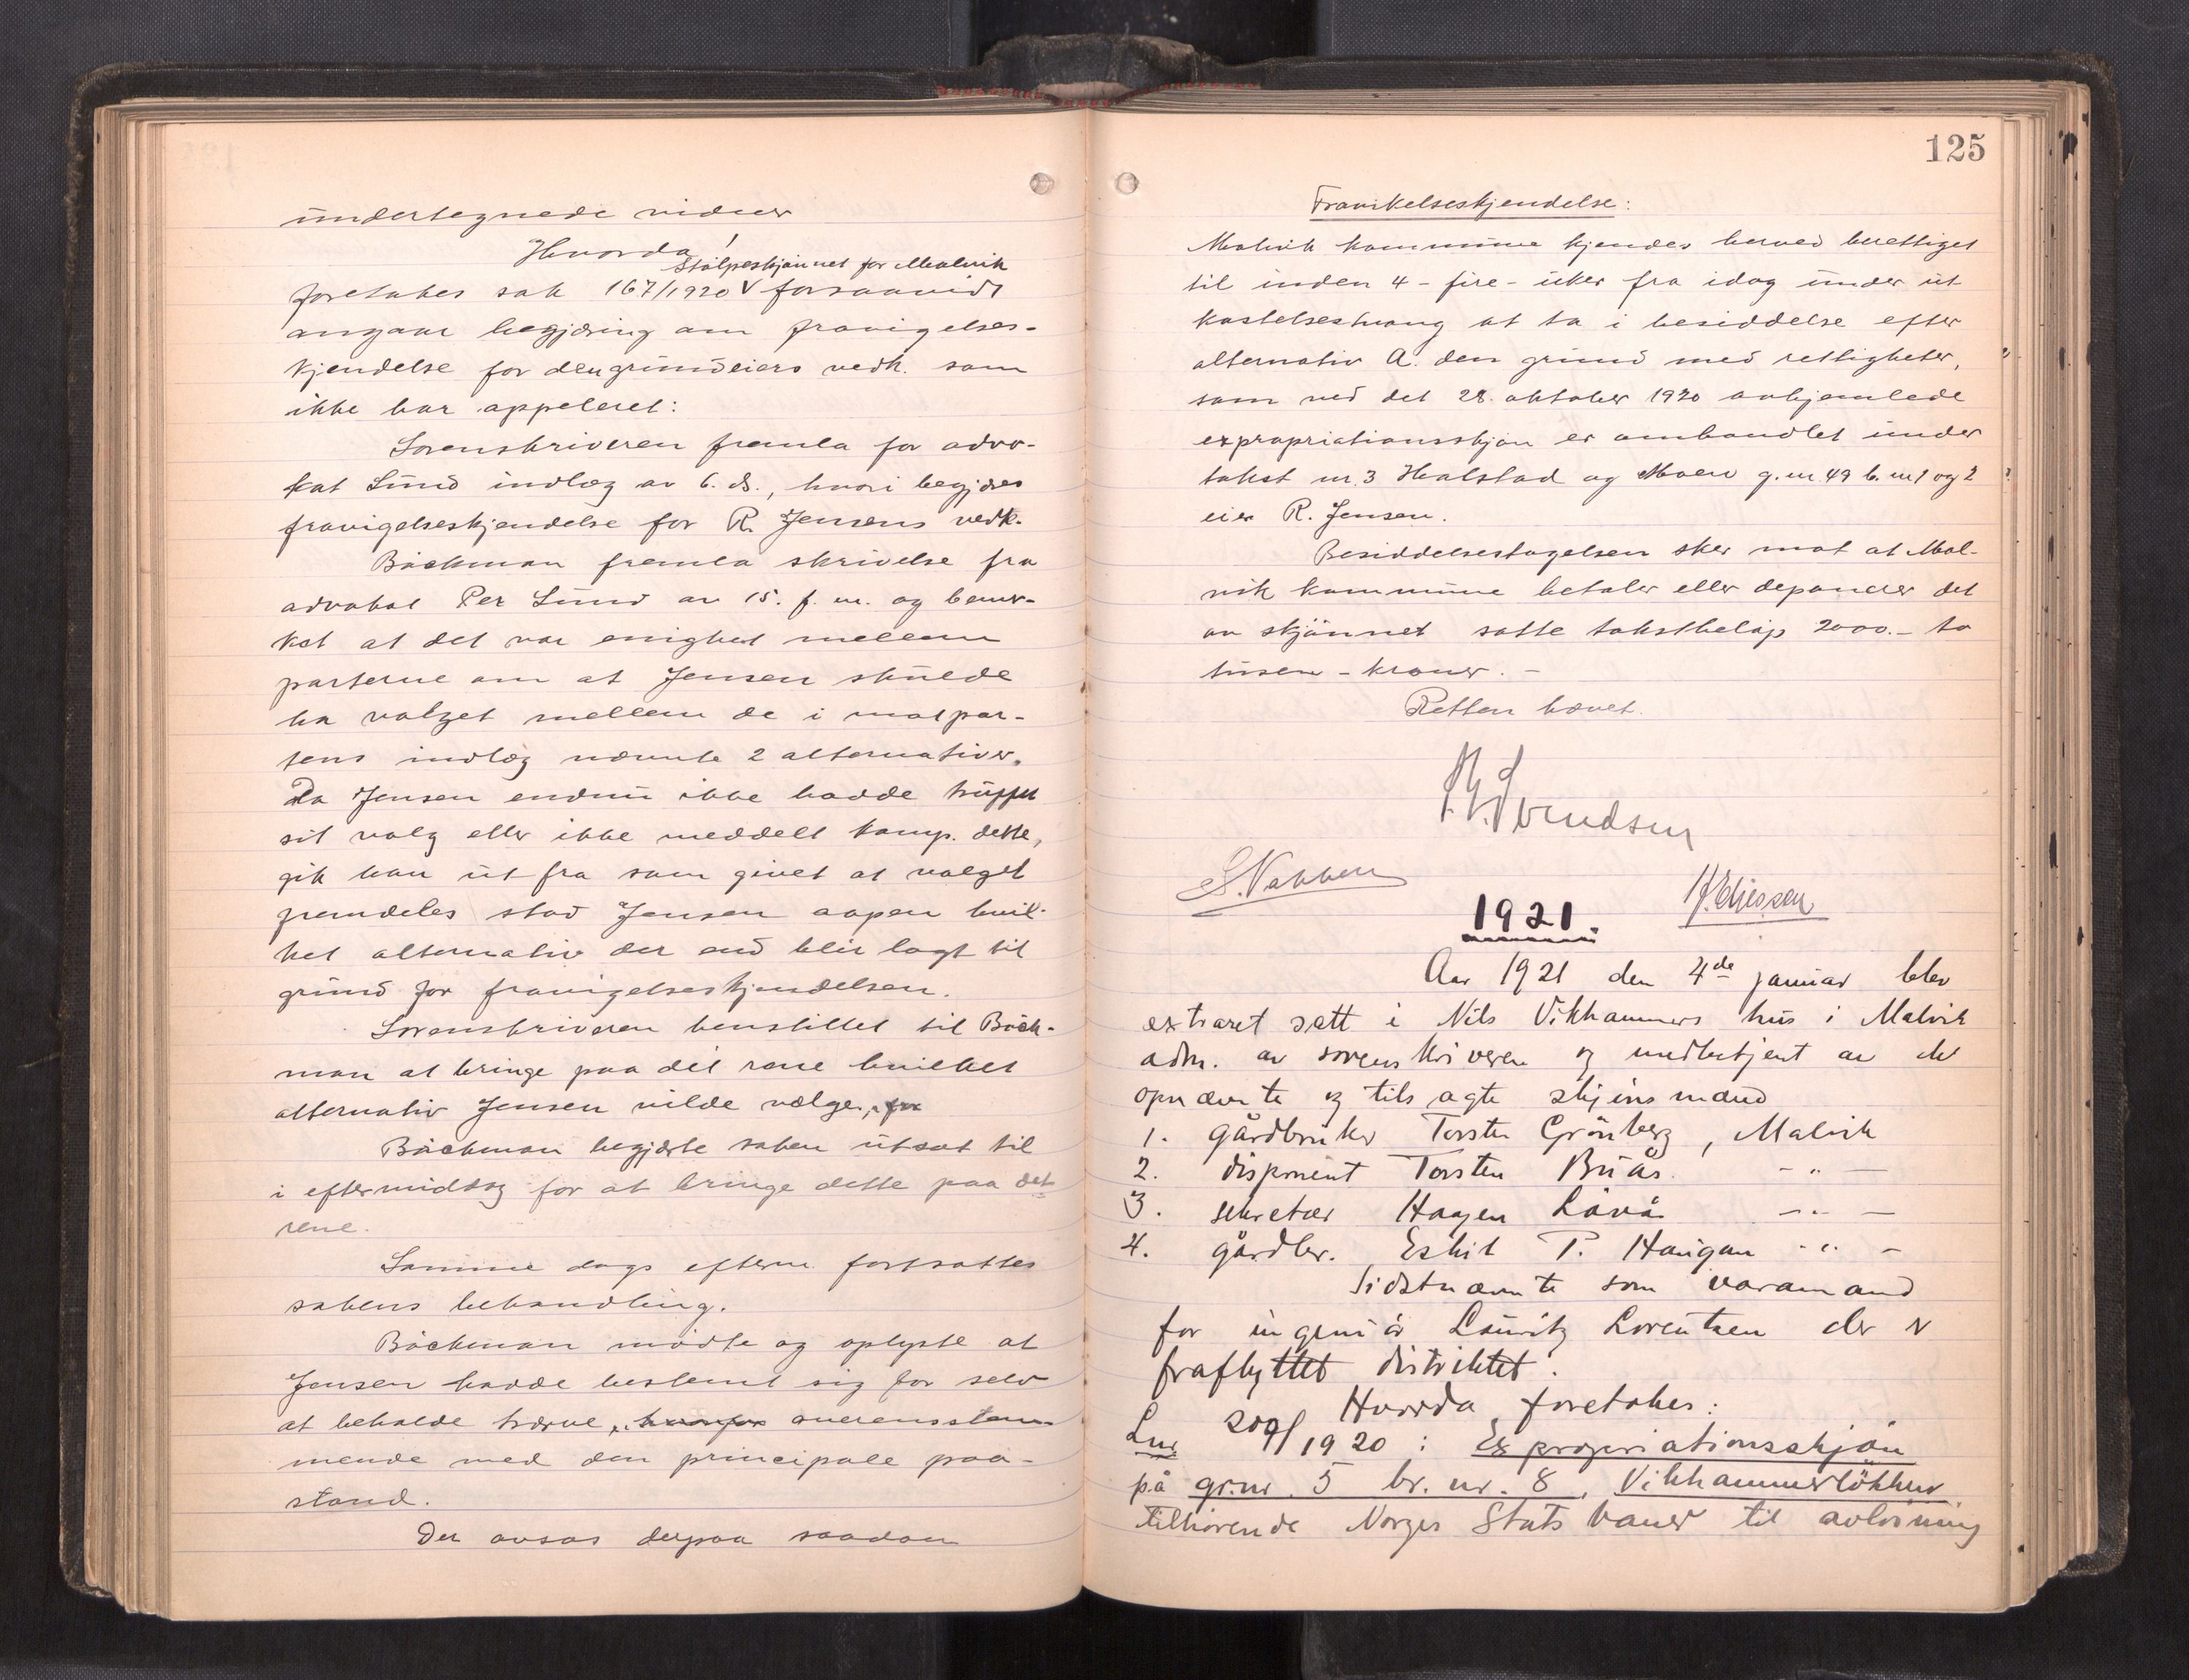 undertegnede vidner
Hvorda!
Stolpeskjönnet for Malvik
foretokes sak 167/1920 V forsaavidt
angaar begjæring om fravigelses-
kjendelse for den grundeiers vedk. som
ikke har appeleret:
Sorenskriveren fremla for advo-
kat Lund indlæg av 6. ds., hvori begjæres
fravigelseskjendelse for R. Jensens vedk.
Bäckman fremla skrivelse fra
advokat Per Lund av 15. f. m. og bemer-
ket at det var enighet mellem
parterne om at Jensen skulde
ha valget mellem de i motpar-
tens indlæg nævnte 2 alternativer.
Da Jensen endnu ikke hadde truffet
sit valg eller ikke meddelt komp. dette,
gik han ut fra som givet at valget
fremdeles stod Jensen aapen hvil-
ket alternativ der end blir lagt til
grund for fravigelseskjendelsen.
Sorenskriveren henstillet til Bäck-
man at bringe paa det rene hvilket
alternativ Jensen vilde vælge.
Bäckman begjærte saken utsat til
i eftermiddag for at bringe dette paa det
rene.
Samme dags efterm. fortsattes
sakens behandling.
Bäckman mødte og oplyste at
Jensen hadde bestemt sig for selv
at beholde trærne, hvorfor overensstem-
mende med den principale paa-
stand.
Der avsas derpaa saadan
125
Fravikelseskjendelse:
Malvik kommune kjendes herved berettiget
til inden 4 - fire - uker fra idag under ut
kastelsestvang at ta i besiddelse efter
alternativ A. den grund med rettigheter,
som ved det 28. oktober 1920 avhjemlede
expropriationsskjön er omhandlet under
takst nr. 3 Halstad og Moen g.nr. 49 b.nr 1 og 2
eier R. Jensen.
Besiddelsestagelsen sker mot at Mal-
vik kommune betaler eller deponerer det
av skjönnet satte takstbelöp 2000.- to
tusen - kroner. -
Retten hævet.
Svendsen
1921.
Aar 1921 den 4de januar blev
extraret satt i Nils Vikhammers hus i Malvik
adm. av sorenskriveren og medbetjent av de
opnævnte og tilsagte skjönsmænd
1. gårdbruker Torsten Grönberg, Malvik
2. disponent Torsten Buås. - " -
3. sekretær Haagen Låvå - " -
4. gårdbr. Eskil P. Haugan - " -
Sidstnævnte som varamand
for ingeniör Lauritz Lorentzen der er
fraflyttet distriktet.
Hvorda foretokes:
Lnr 209/1920: Expropriationsskjön
på gr.nr. 5 br. nr. 8, Vikhammerlökken
tilhörende Norges Statsbaner til avlösning